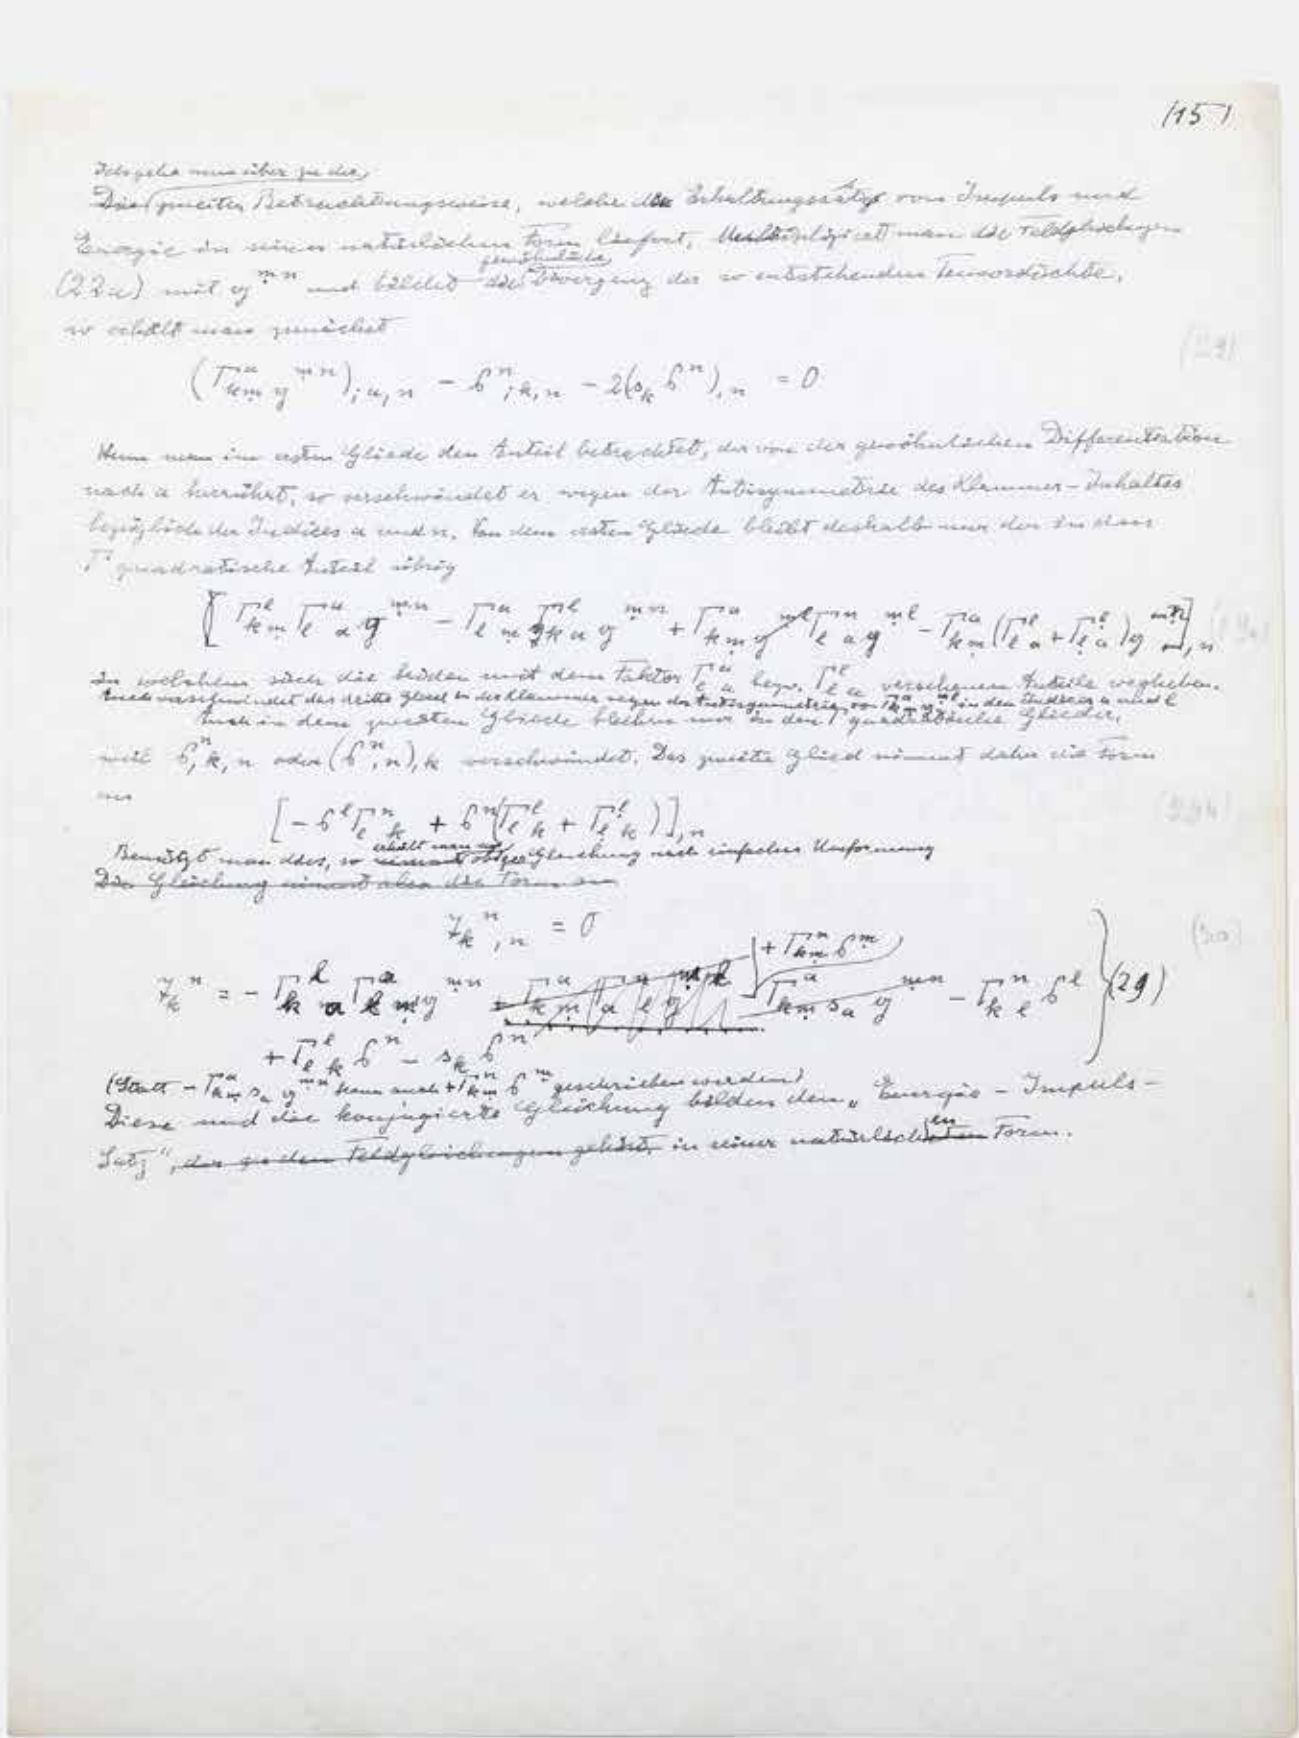 (15)
Ich gehe nun über zu der
Die zweiten Betrachtungsweise, welche den Erhaltungssatz vom Impuls und
Energie in seiner natürlichen Form liefert. Multipliziert man die Feldgleichungen
gewöhnliche
(22a) mit g^{mn} und bildet die Divergenz der so entstehenden Tensordichte,
so erhält man zunächst
(Γ^a_{km} g^{mn})_{;a,n} − б^n_{;k,n} − 2(s_k б^n)_{,n} = 0
Wenn man im ersten Gliede den Anteil betrachtet, der von der gewöhnlichen Differentiation
nach a herrührt, so verschwindet er wegen der Antisymmetrie des Klammer-Inhaltes
bezüglich der Indices a und n. Von dem ersten Gliede bleibt deshalb nur der in den
Γ quadratische Anteil übrig
[Γ^l_{km} Γ^a_{l a} g^{mn} − Γ^a_{l m} Γ^l_{k a} g^{mn} + Γ^a_{km} Γ^n_{l a} g^{ml} − Γ^a_{km} (Γ^l_{l a} + Γ^l_{l a}) g^{mn}]_{,n}
in welchem sich die beiden mit dem Faktor Γ^l_{l a} bezw. Γ^l_{l a} versehenen Anteile wegheben.
Auch verschwindet das dritte Glied in der Klammer wegen der Antisymmetrie von in den Indices a und l
Auch in dem zweiten Gliede bleiben nur in den Γ quadratische Glieder,
weil б^n_{,k,n} oder (б^n_{,n})_{,k} verschwindet. Das zweite Glied nimmt daher die Form
an
[− б^l Γ^n_{l k} + б^n (Γ^l_{l k} + Γ^l_{l k})]_{,n}
erhält man aus
Benützt man dies, so obige Gleichung nach einfacher Umformung
Die Gleichung nimmt also die Form an
Ƶ_k^n_{,n} = 0
+ Γ^n_{km} б^m
Ƶ_k^n = − Γ^l_{k a} Γ^a_{l m} g^{mn} + Γ^a_{km} Γ^n_{a l} g^{ml} − Γ^a_{km} s_a g^{mn} − Γ^n_{k l} б^l (29)
+ Γ^l_{l k} б^n − s_k б^n
(Statt − Γ^a_{km} s_a g^{mn} kann auch + Γ^n_{km} б^m geschrieben werden)
Diese und die konjugierte Gleichung bilden den „Energie-Impuls-
en
Satz“, der zu den Feldgleichungen gehört, in seiner natürlichsten Form.